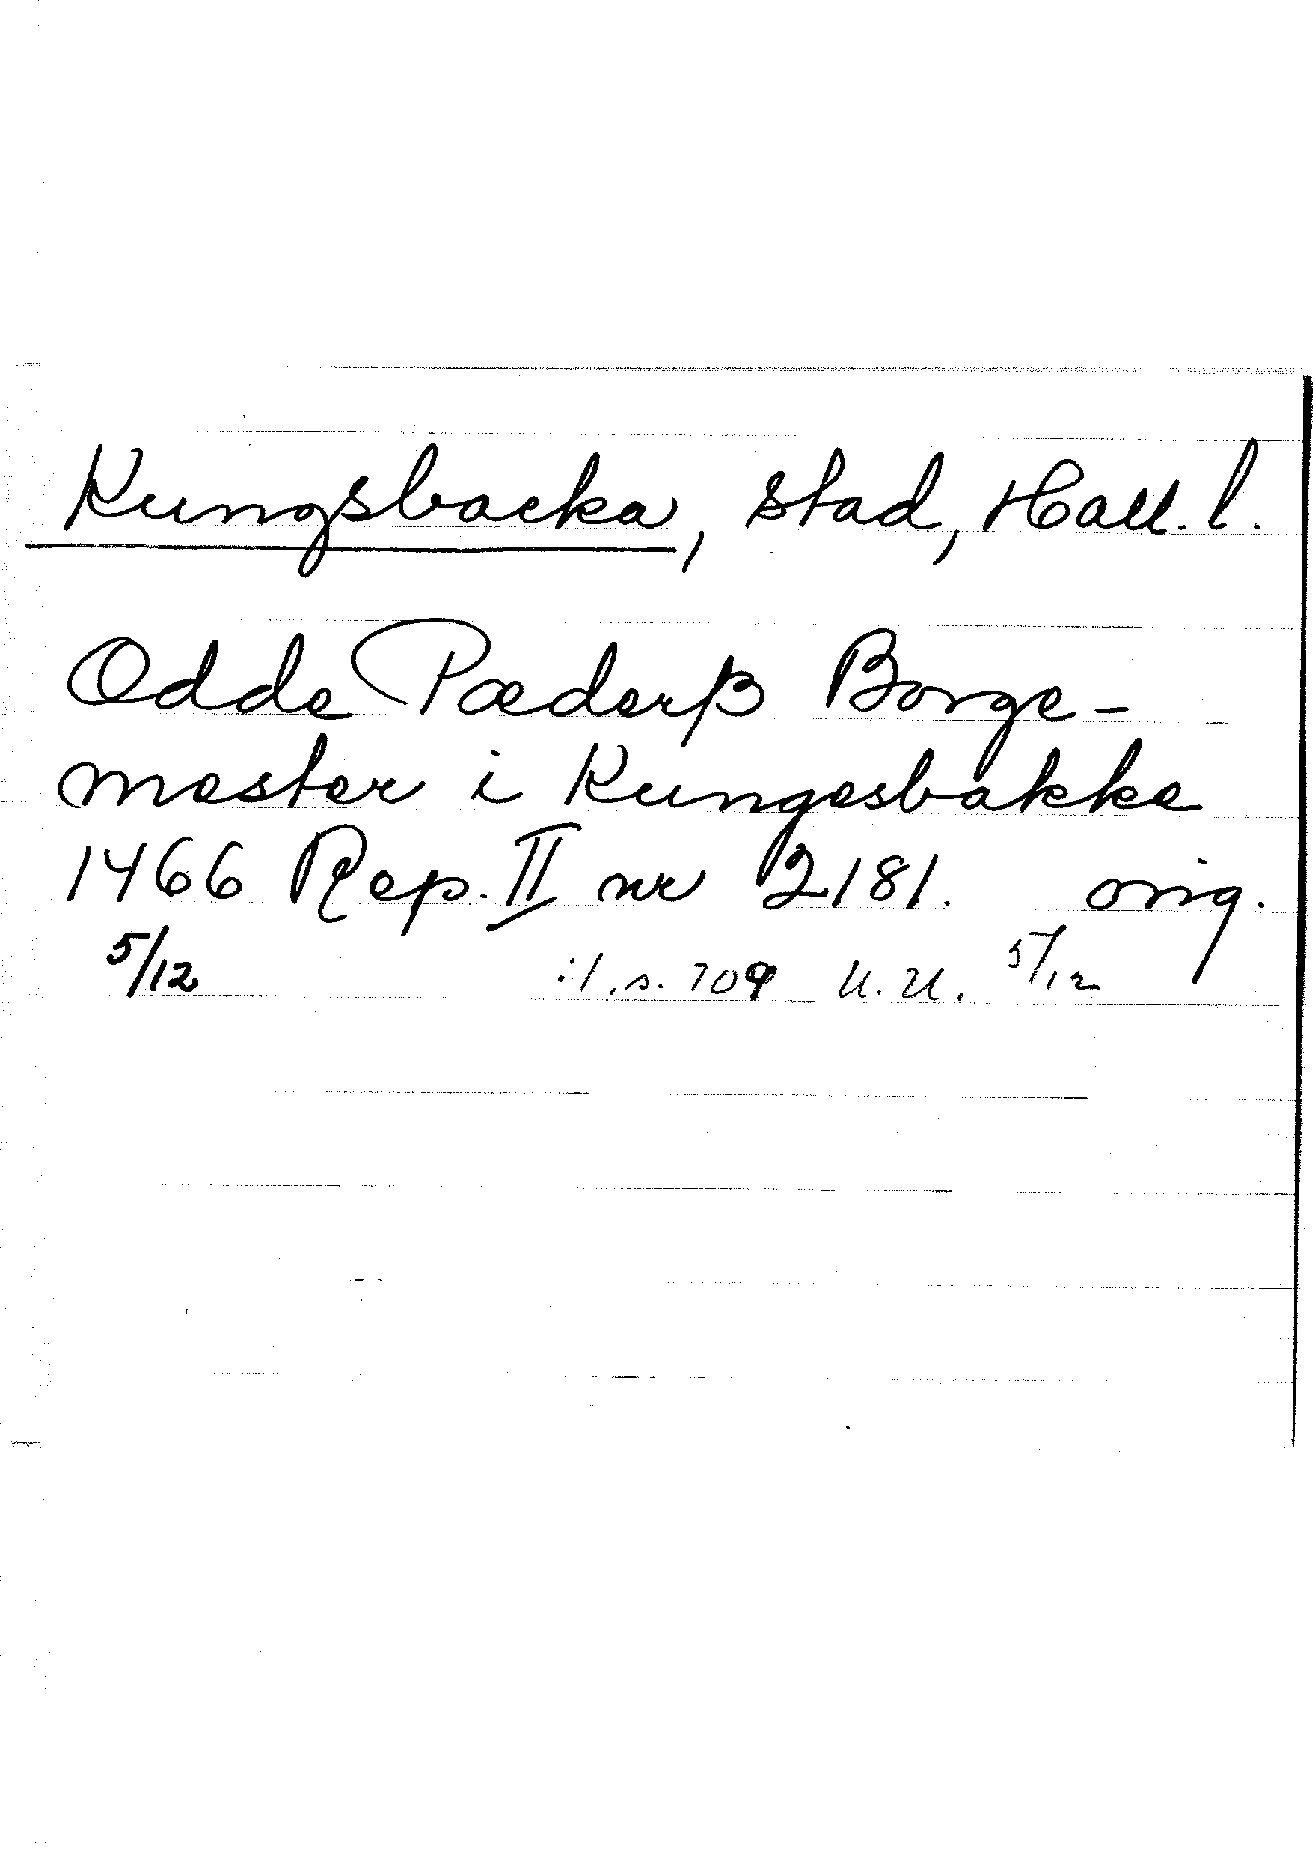 Kungsbacka, stad, Hall. l.
Odde Pæderß Borge-
mester i Kungesbakke
1466 Rep. II nr 2181. orig.
5/12 :1, s. 709 U. U. 5/12